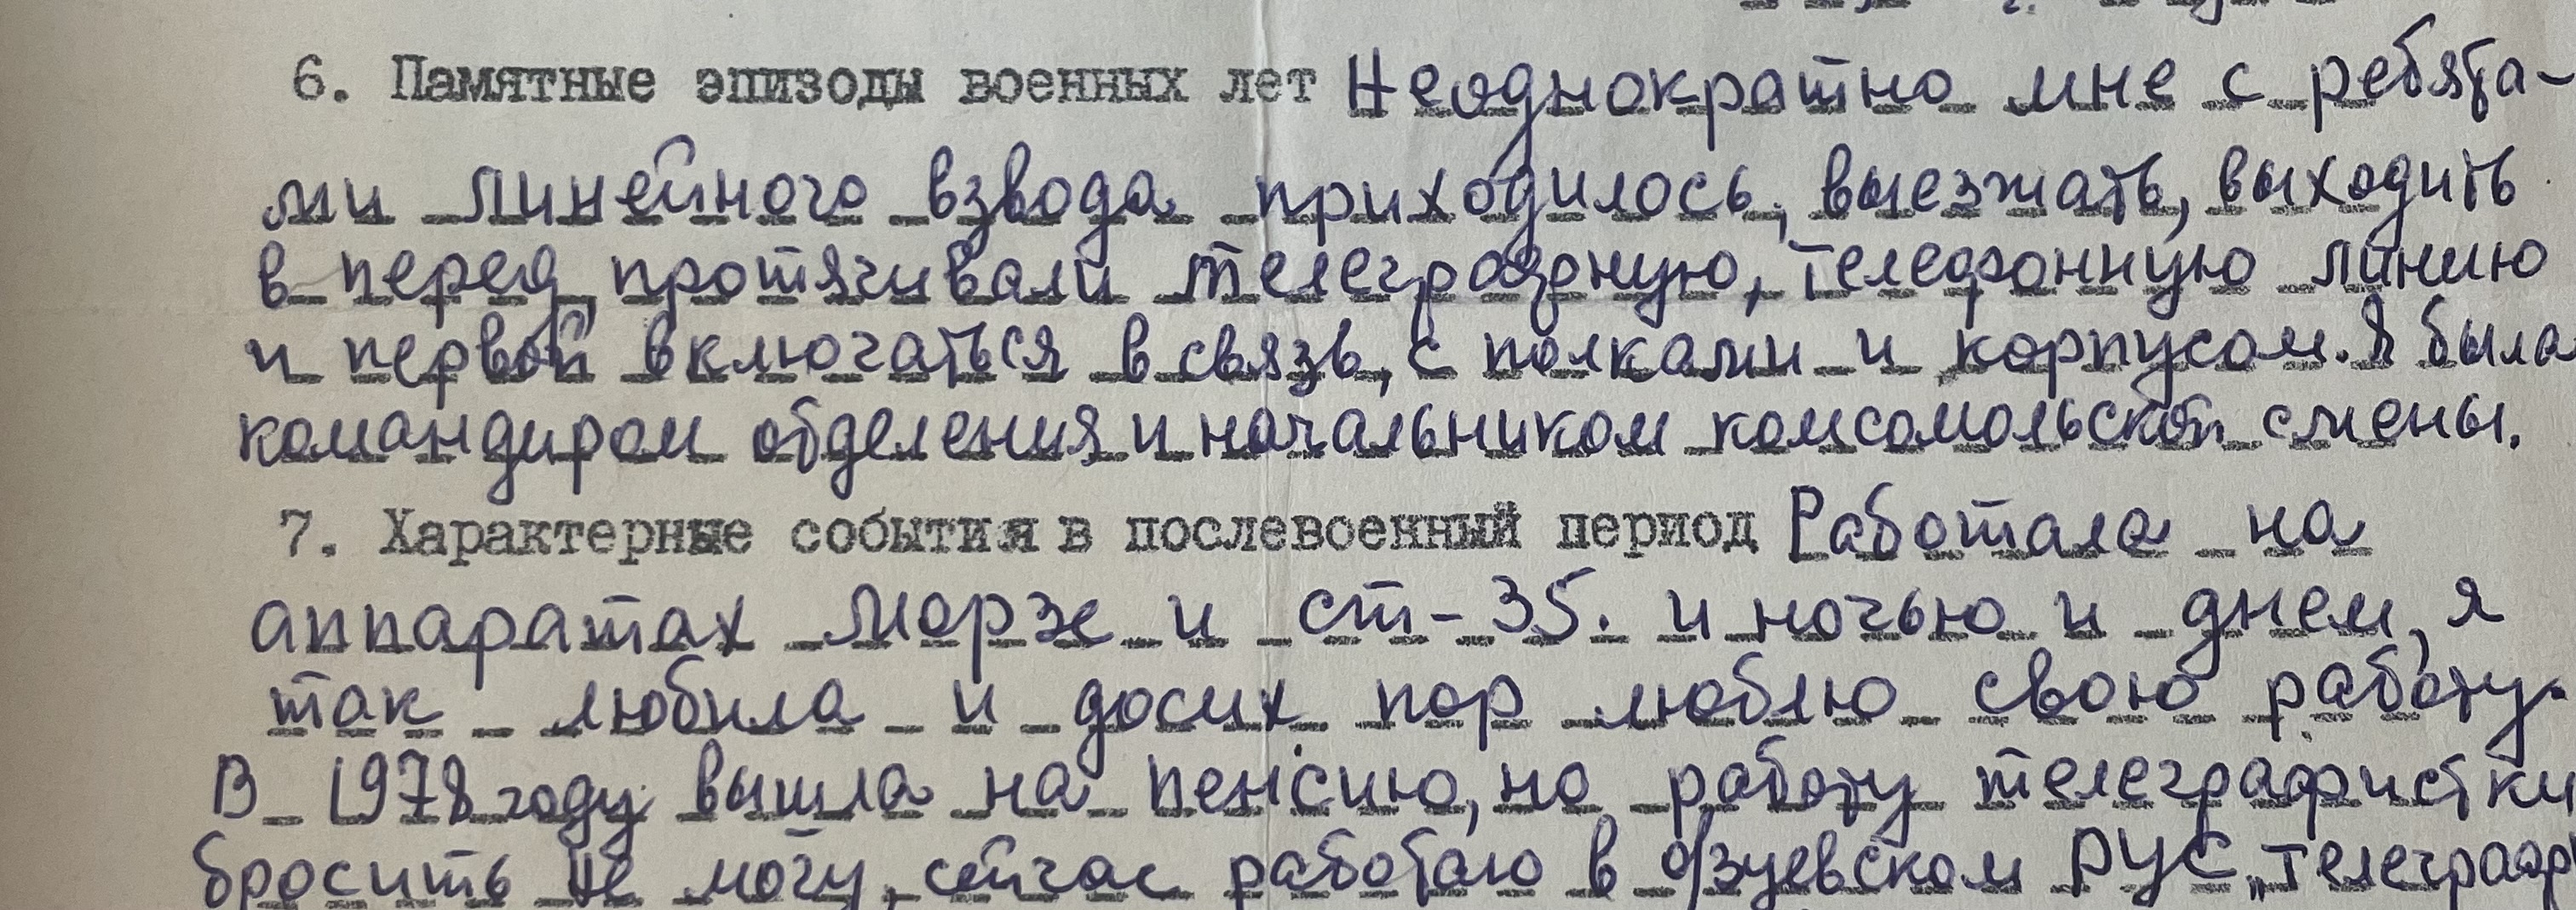 6. Памятные эпизоды военных лет Неоднократно мне с ребята-
ми линейного взвода приходилось, выезжать, выходить
в перед, протягивали телеграфную, телефонную линию
и первой включаться в связь, с полками и корпусом. Я была
командиром отделения и начальником комсомольской смены.
7. Характерные события в послевоенный период Работала на
аппаратах Морзе и ст-35. и ночью и днем, я
так любила и досих пор люблю свою работу.
В 1978 году вышла на пенсию, но работу телеграфистки
бросить не могу, сейчас работаю в о/зуевском РУС, „Телеграф